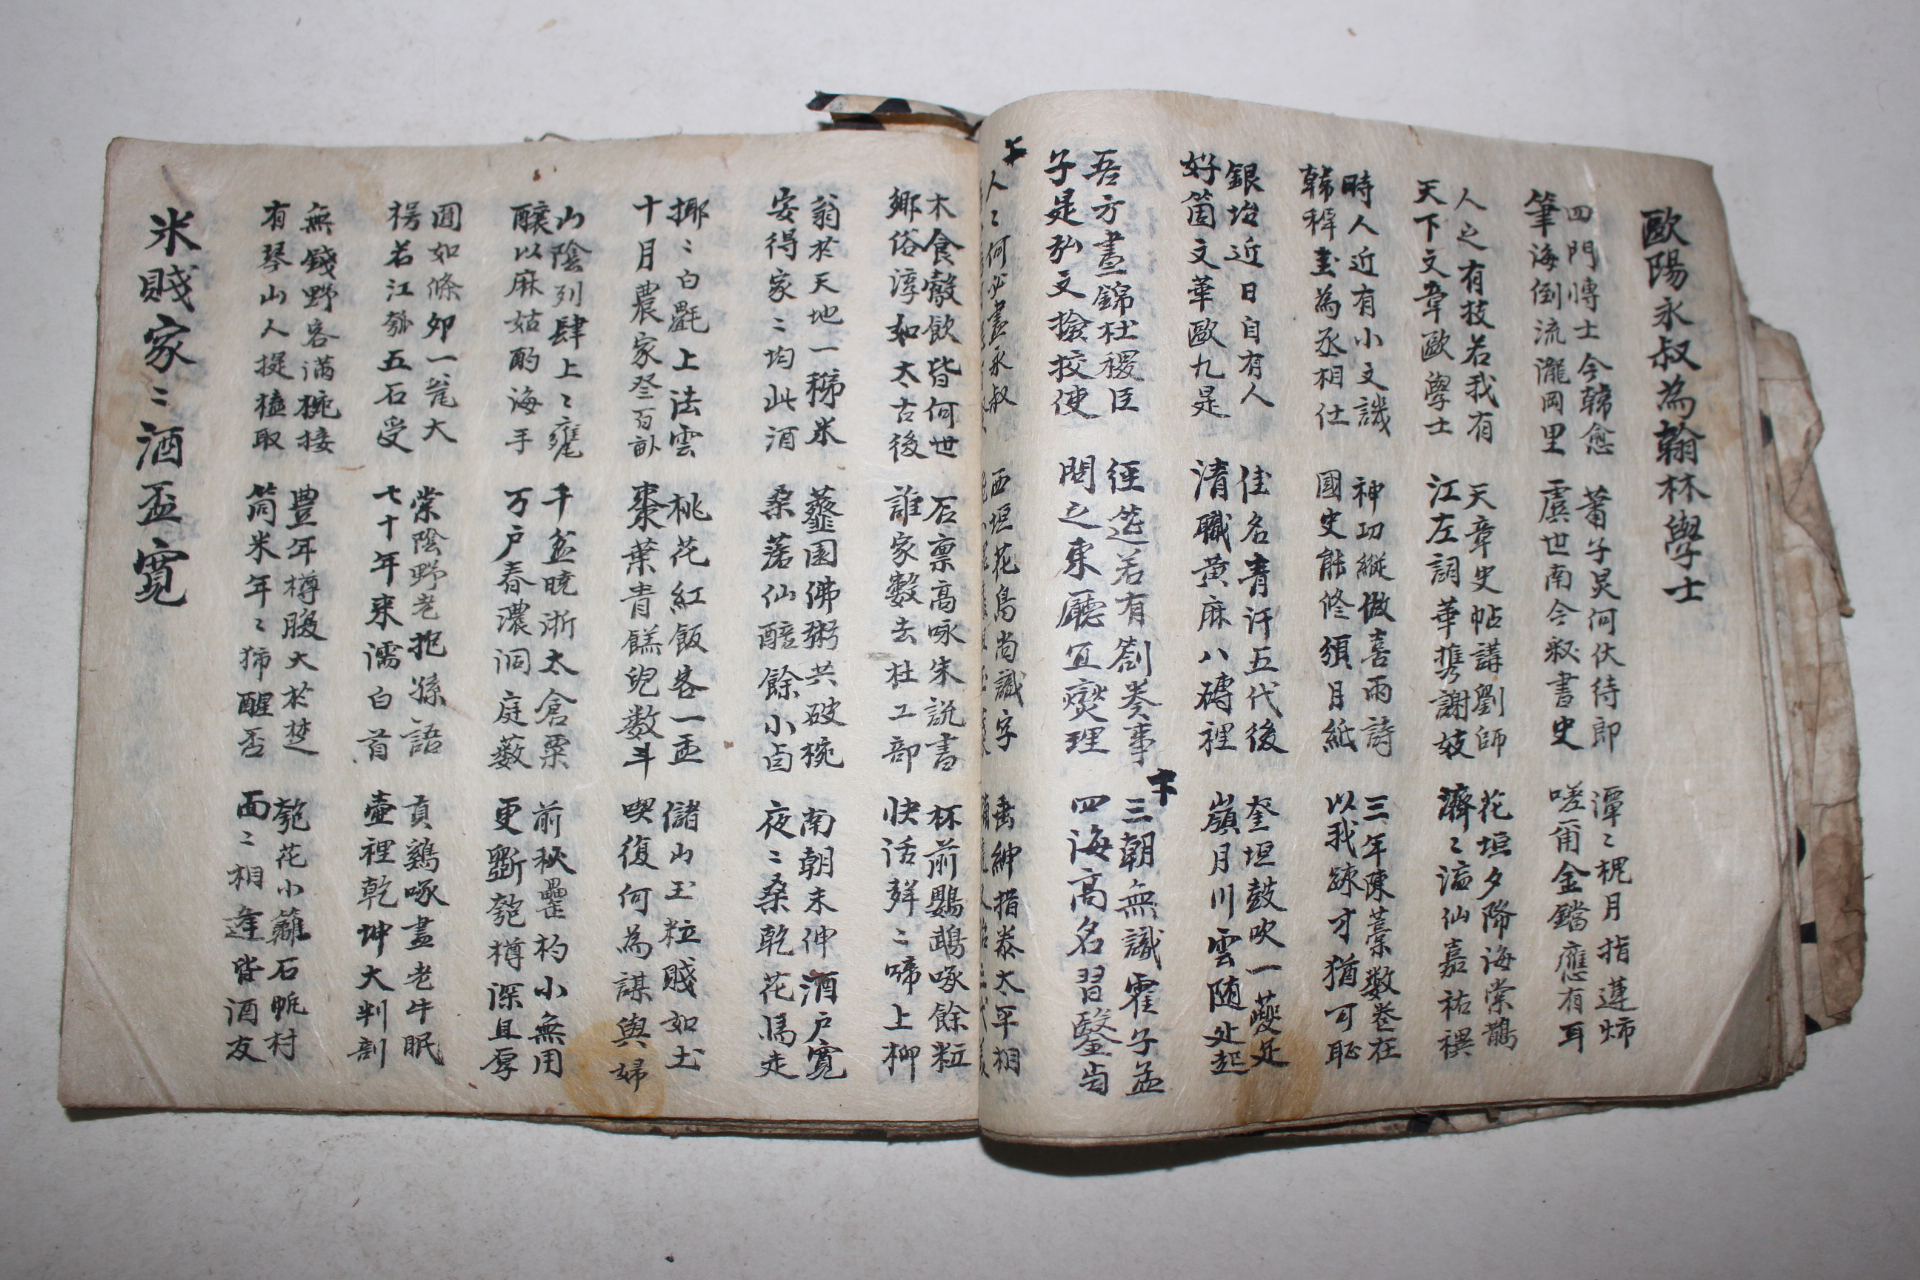 歐陽永叔為翰林學士
四門博士今韓愈
筆海倒流瀧岡里
蕭子炅何伏待郎
虞世南今秘書史
潭〻槐月指遵
嗟甭金鐺應有耳
人之有技若我有
天下文章歐學士
天章史帖講劉師
江左詞華携謝妓
花垣夕降海棠鵲
濟〻溢仙嘉祐禩
時人近有小文譏
韓稱圭為丞相仕
神功縱倣喜雨詩
國史能修須月紙
三年陳藁数卷在
以我踈才猶可恥
銀坮近日自有人
好箇文華歐九是
佳名靑汗五代後
清職黄麻八磚裡
奎垣鼓吹一夔足
嶺月川雲随处起
吾方晝錦社稷臣
子是弘文撿挍使
經筵若有劄奏事
問之東廳宜爕理
三朝無識霍子孟
四海高名習鑿齒
人〻何必盡永叔
西垣花鳥尚識字
垂紳措泰太平相
木食㲉飲皆何世
鄉俗淳如太古後
石禀高咏朱說書
誰家數去杜工部
杯前鸚鵡啄餘粒
快活聲〻啼上柳
翁於天地一稊米
安得家〻均此酒
薤園佛粥共破椀
桑落仙醅餘小卣
南朝末伸酒户寬
夜〻桑乾花馬走
揶〻白㲲上法雲
十月農家登百畝
桃花紅飯客一盂
棗葉青餻兒数斗
儲山玉粒賤如土
喫復何為謀與婦
山陰列肆上〻甕
釀以麻姑酌海手
千盆曉淅太倉粟
万户春濃洞庭薮
前秋罍杓小無用
更斲匏樽深且厚
圓如條卵一瓮大
楞若江匏五石受
棠陰野老抱孫語
七十年来濡白首
貢鷄啄盡老牛眠
壷裡乾坤大判剖
無錢野客满椀接
有琴山人提榼取
豊年樽腹大於楚
筒米年〻狶醒否
匏花小籬石帆村
面〻相逢皆酒友
米賤家〻酒盃寬